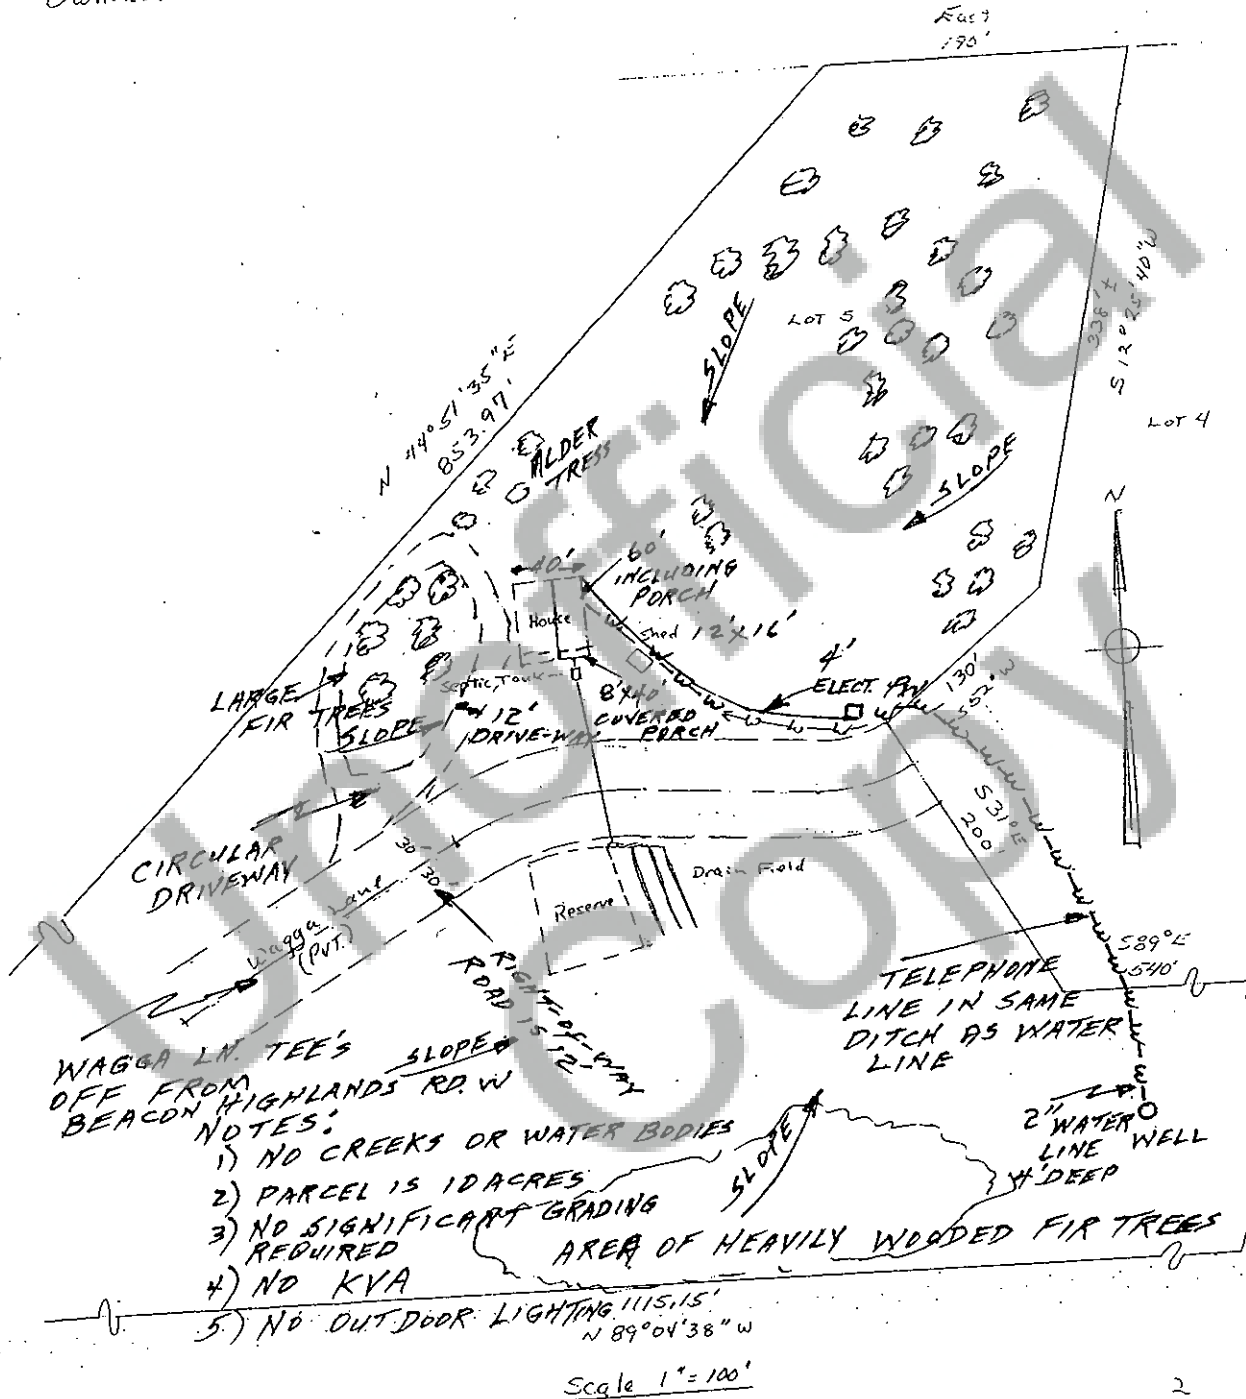 East
190'
LOT 5
SLOPE
338'±
S 12° 25' 40" W
LOT 4
N 44° 51' 35" E
853.97'
ALDER
TRESS
SLOPE
N
40'
60'
INCLUDING
PORCH
House
Shed 12'X16'
4'
ELECT. PW
130'
S 52° W
Septic Tank
8'X40'
COVERED
PORCH
LARGE
FIR TREES
SLOPE
12'
DRIVE-WAY
S 31° E
200'
CIRCULAR
DRIVEWAY
30'
30'
Wagga Lane
(PVT.)
Drain Field
Reserve
RIGHT-OF-WAY
ROAD IS 12'
S89°E
540'
TELEPHONE
LINE IN SAME
DITCH AS WATER
LINE
WAGGA LN. TEE'S
OFF FROM
BEACON HIGHLANDS RD. W
SLOPE
NOTES:
1) NO CREEKS OR WATER BODIES
2) PARCEL IS 10 ACRES
3) NO SIGNIFICANT GRADING
REQUIRED
4) NO KVA
5) NO OUTDOOR LIGHTING
SLOPE
2" WATER
LINE
4' DEEP
WELL
AREA OF HEAVILY WOODED FIR TREES
1115.15'
N 89° 04' 38" W
Scale 1" = 100'
2
Unofficial
Copy